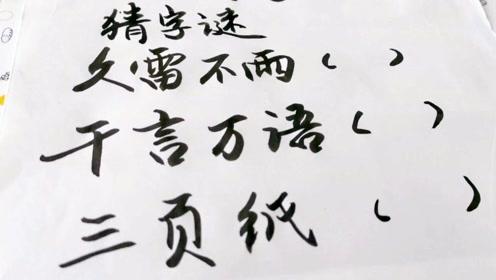 猜字谜
久雷不雨（ ）
千言万语（ ）
三页纸（ ）